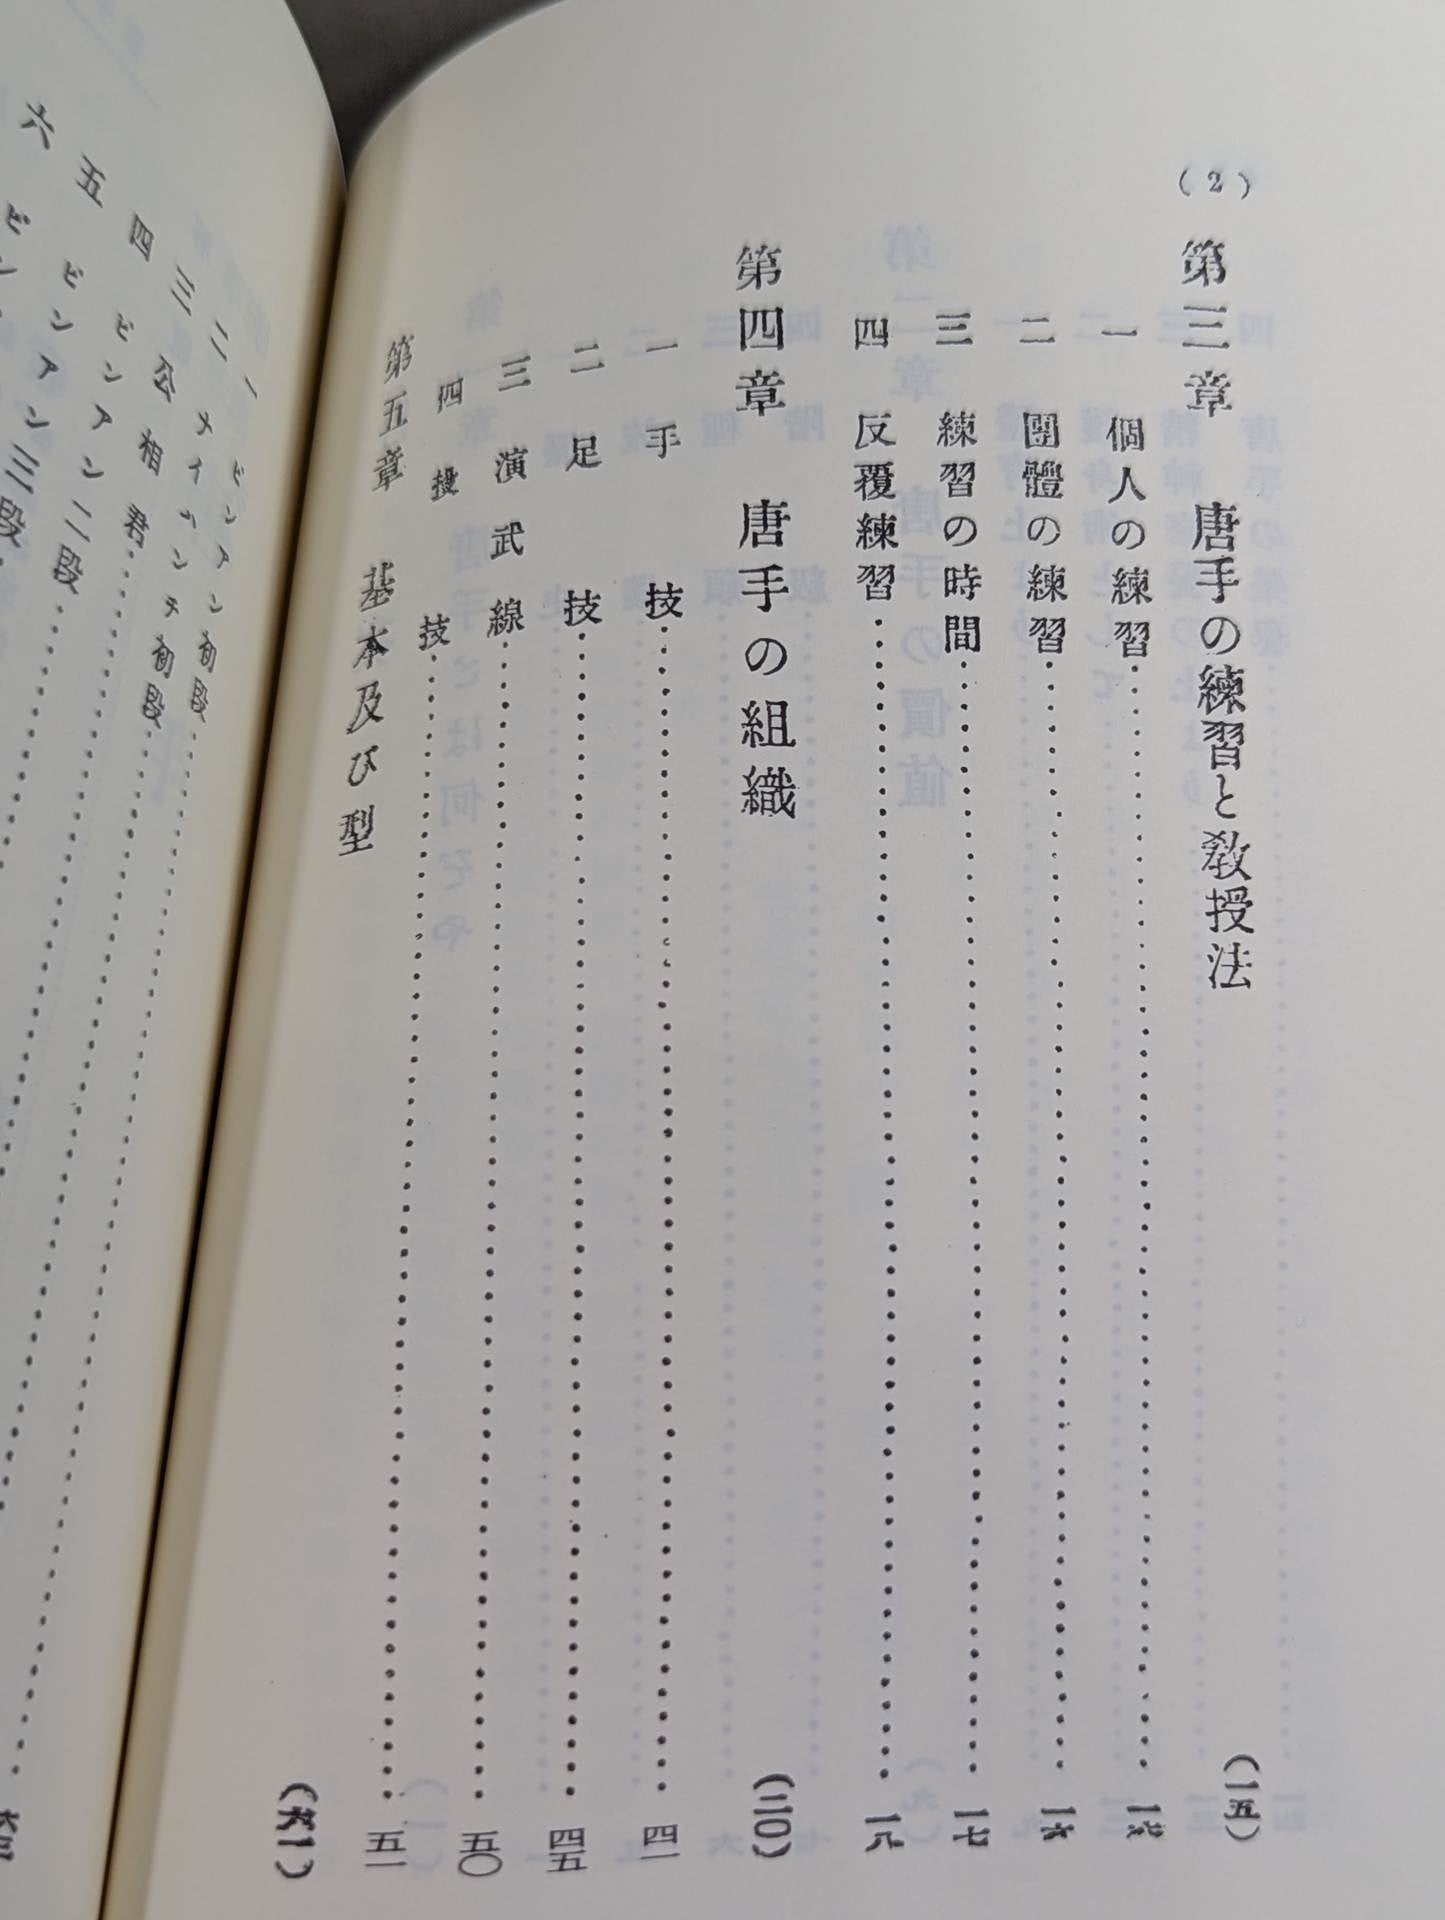 (2)
第三章 唐手の練習と教授法 (一五)
一 個人の練習 一六
二 團體の練習 一六
三 練習の時間 一七
四 反覆練習 一八
第四章 唐手の組織 (二〇)
一 手 技 四一
二 足 技 四五
三 演武線 五〇
四 投 技 五一
第五章 基本及び型 (六一)
一 ピンアン初段
二 ナイハンチ初段
三 公相君
四 ピンアン二段
五 ピンアン三段
六